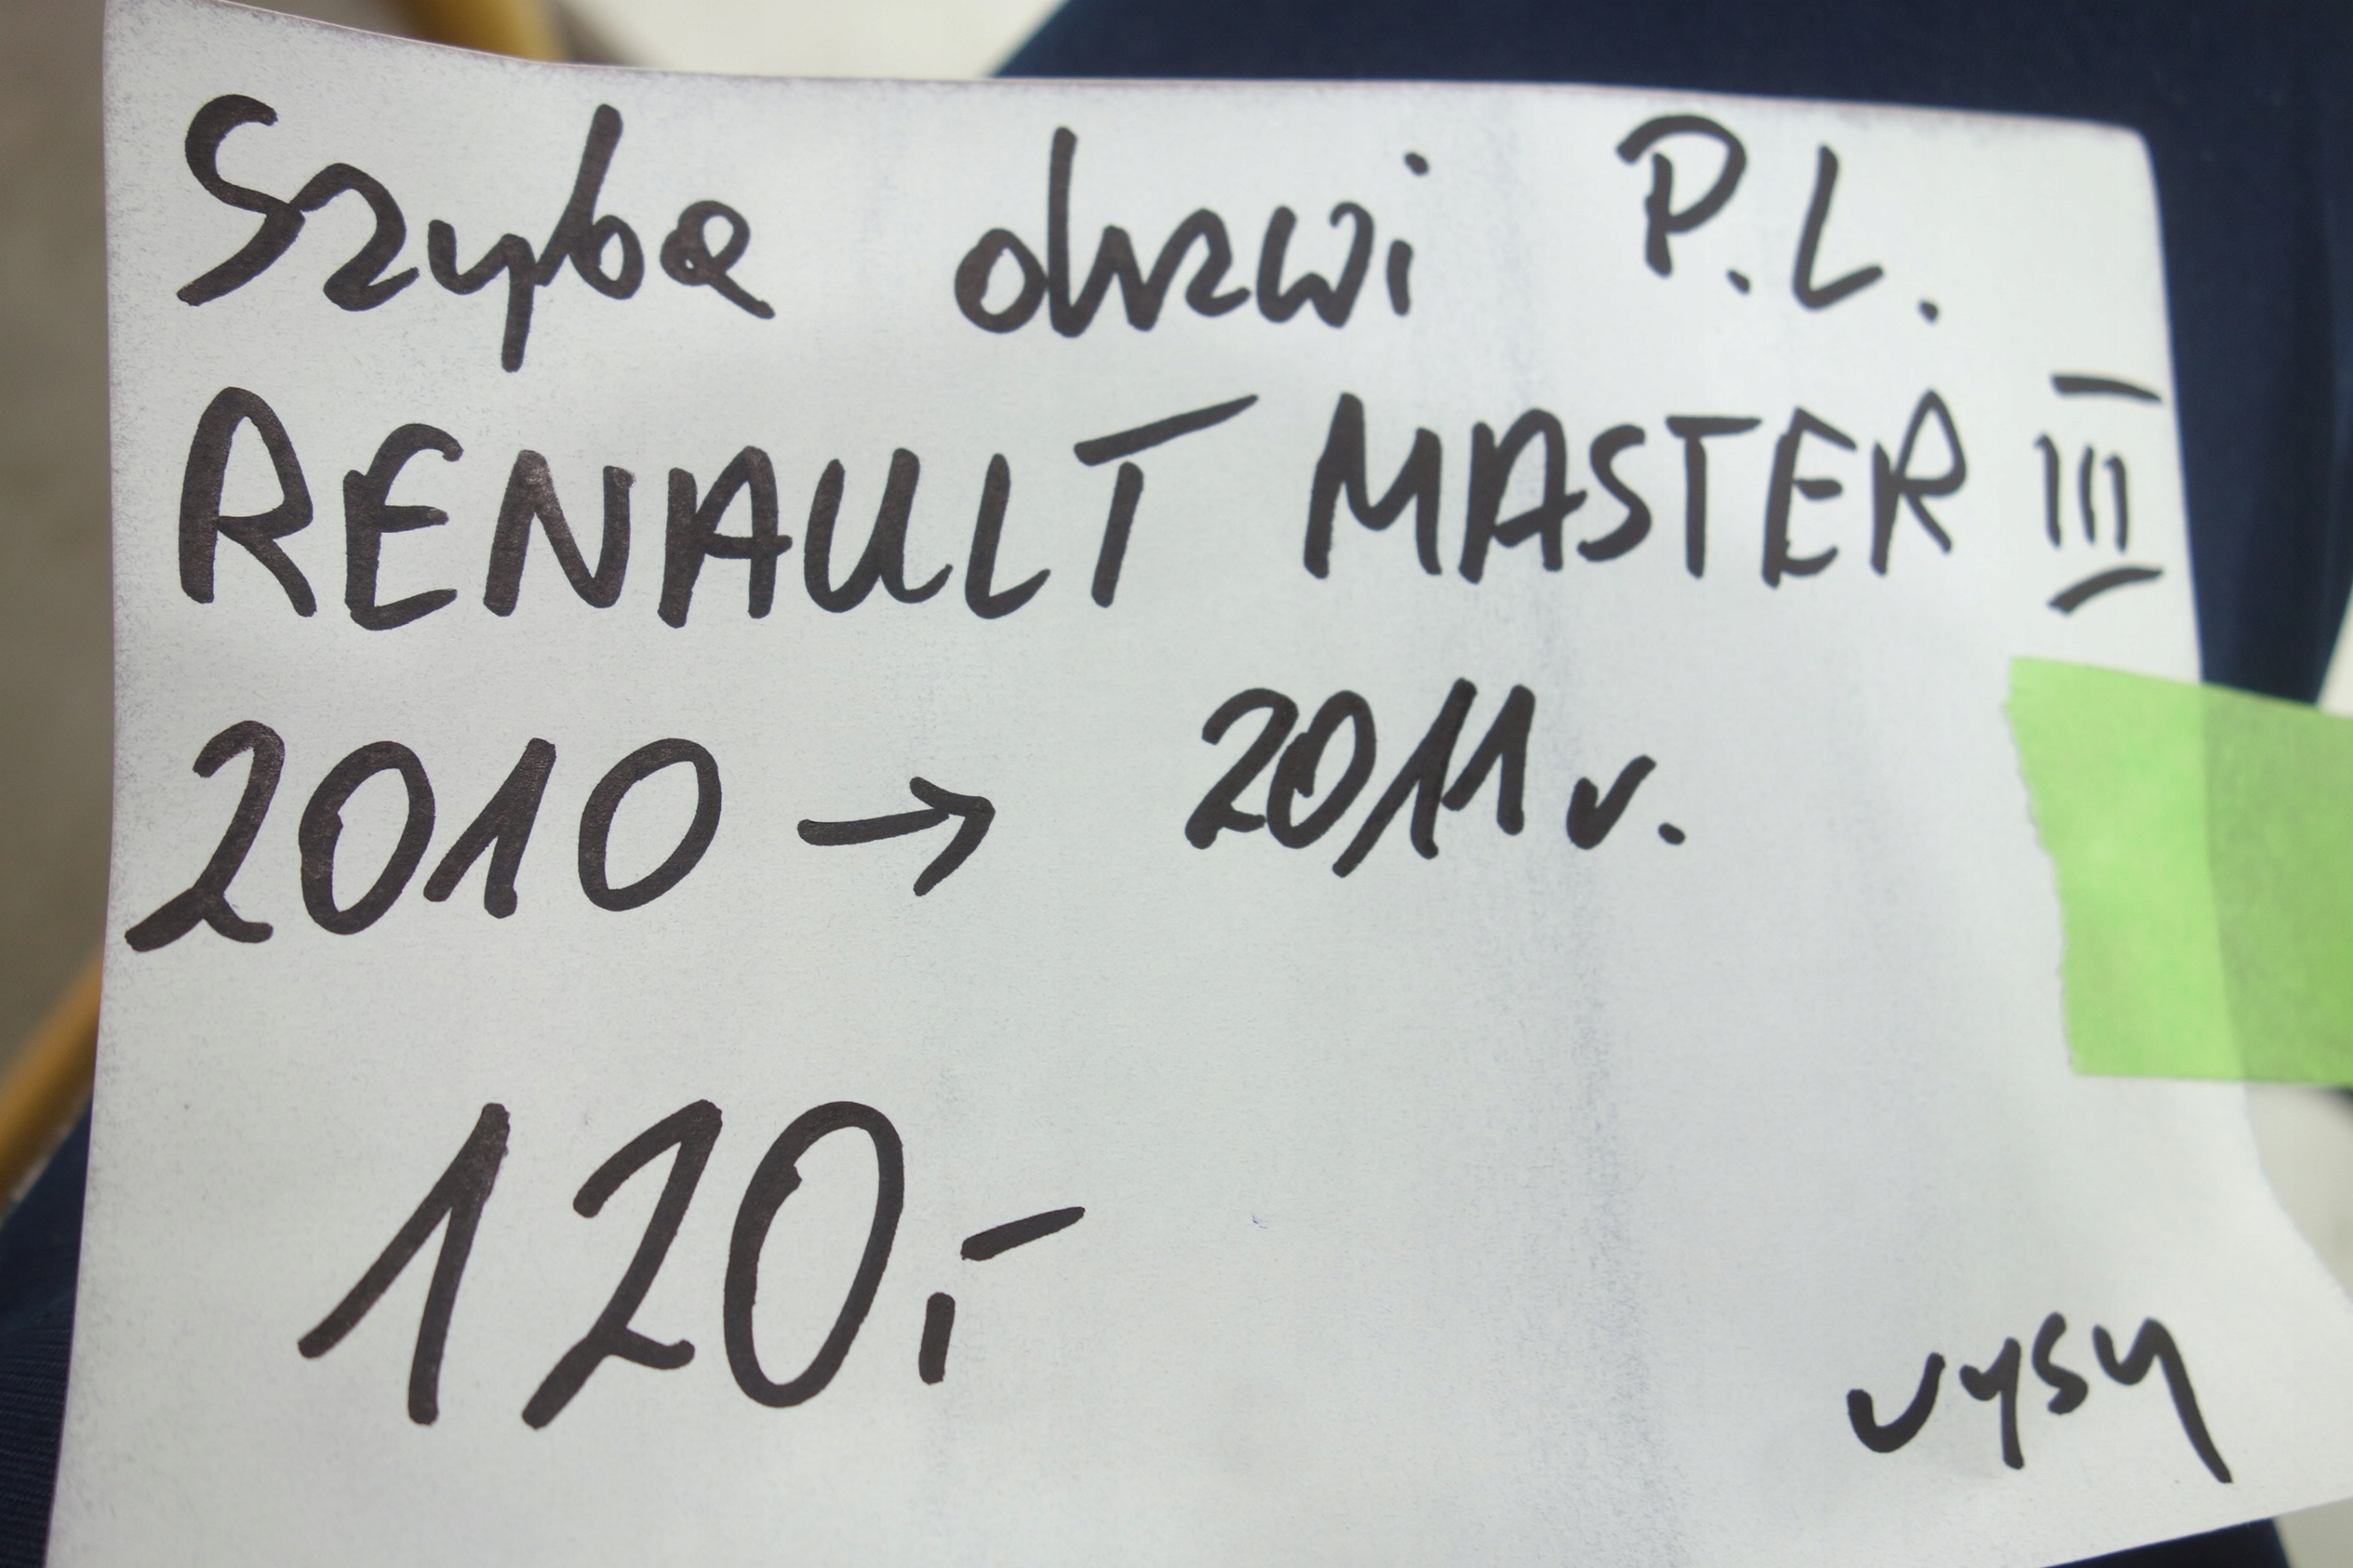 Szyba drzwi P.L.
RENAULT MASTER III
2010 → 2011 r.
120,-
rysy